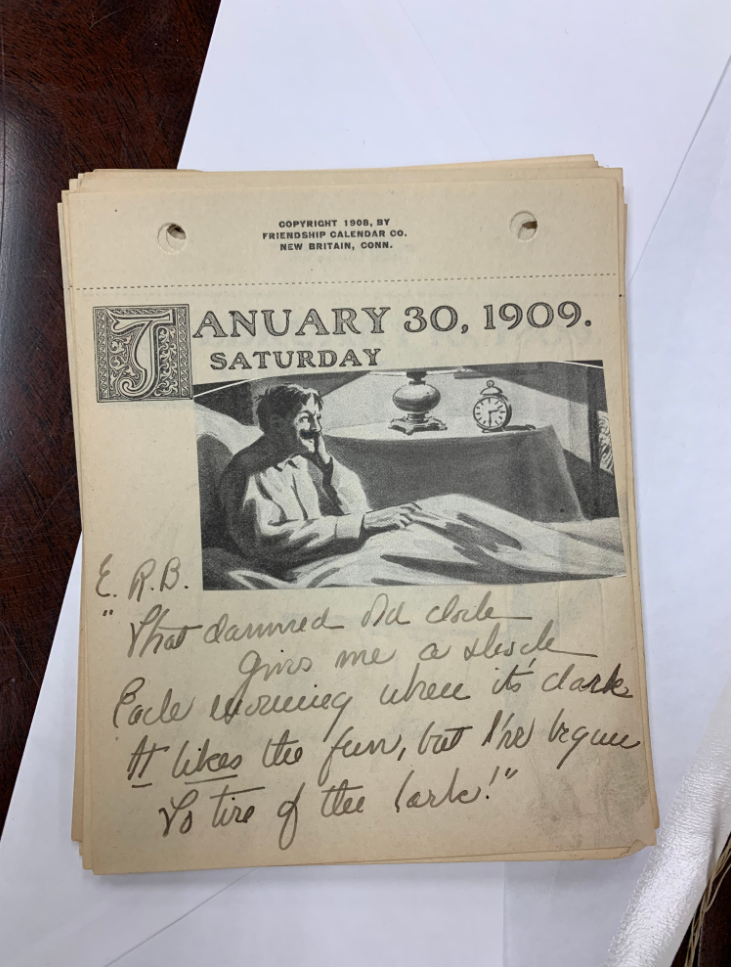 COPYRIGHT 1908, BY
FRIENDSHIP CALENDAR CO.
NEW BRITAIN, CONN.
JANUARY 30, 1909.
SATURDAY
E. R. B.
"That damned old clock
gives me a shock
Each morning when it's dark
It likes the fun, but I've begun
To tire of the lark!"